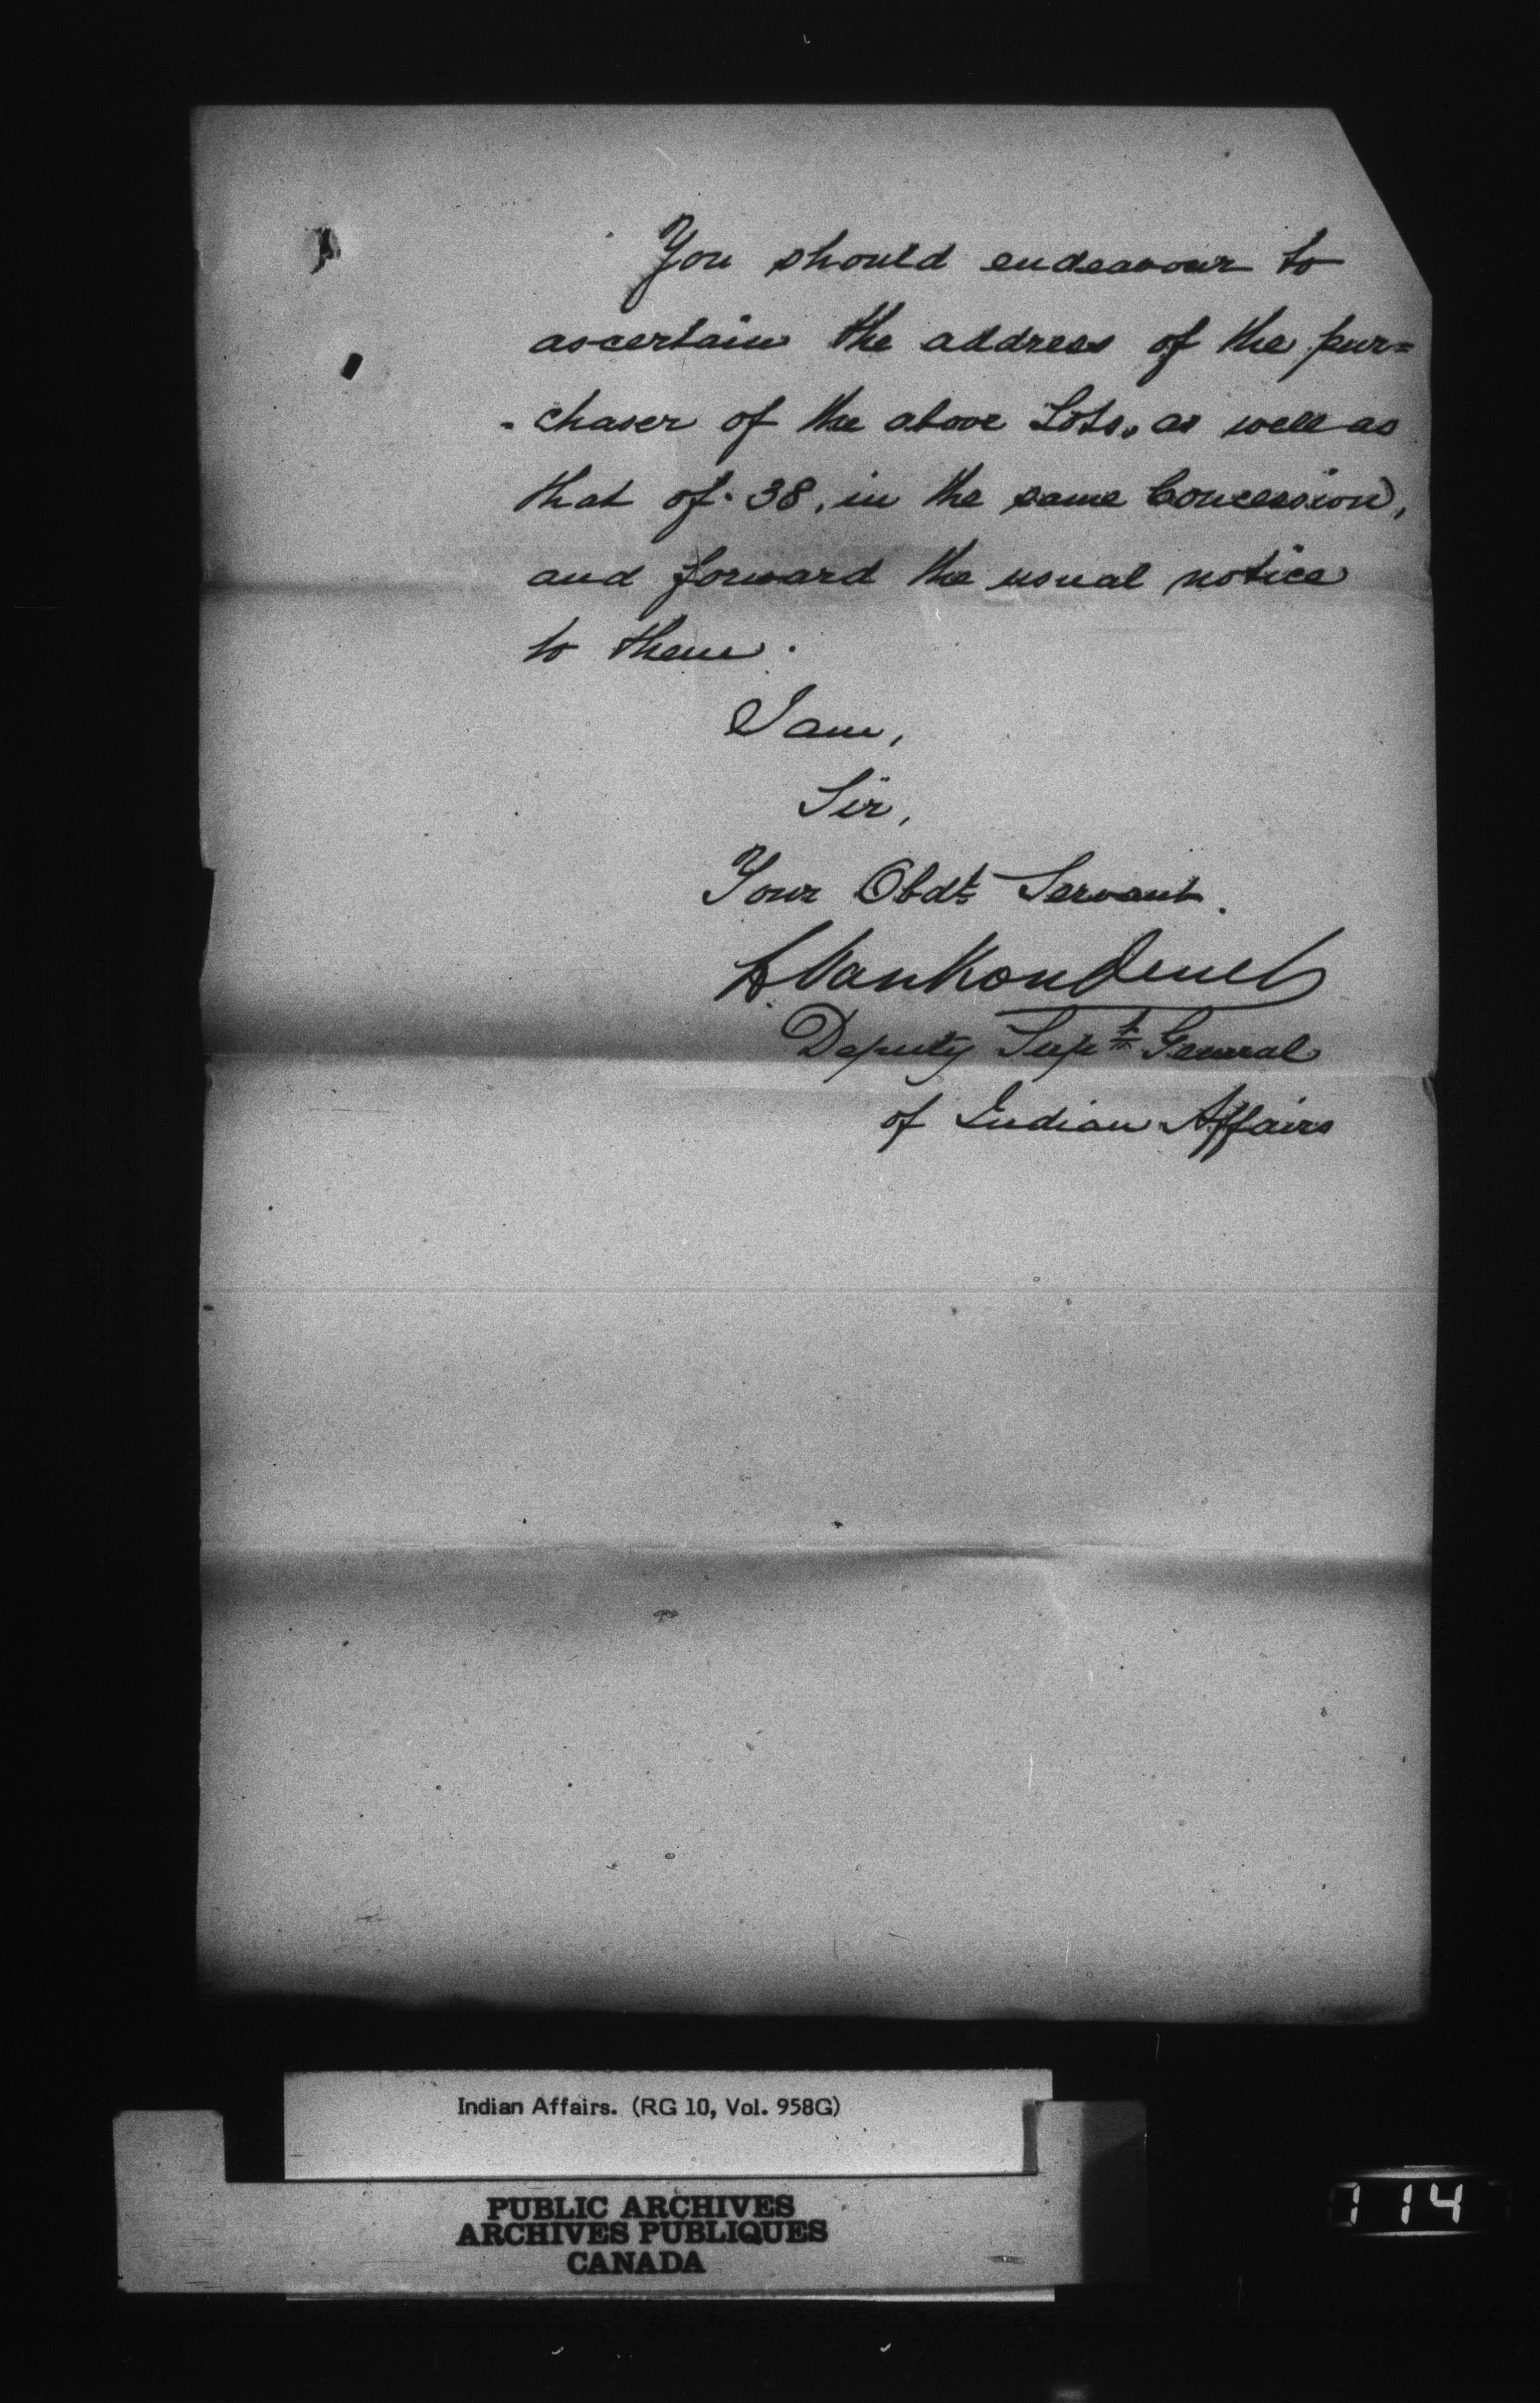 You should endeavour to
ascertain the address of the pur=
-chaser of the above Lots, as well as
that of 38, in the same Concession,
and forward the usual notice
to them.
I am,
Sir,
Your Obdt Servant.
L VanKoughnet
Deputy Supt General
of Indian Affairs
Indian Affairs. (RG 10, Vol. 958G)
PUBLIC ARCHIVES
ARCHIVES PUBLIQUES
CANADA
114